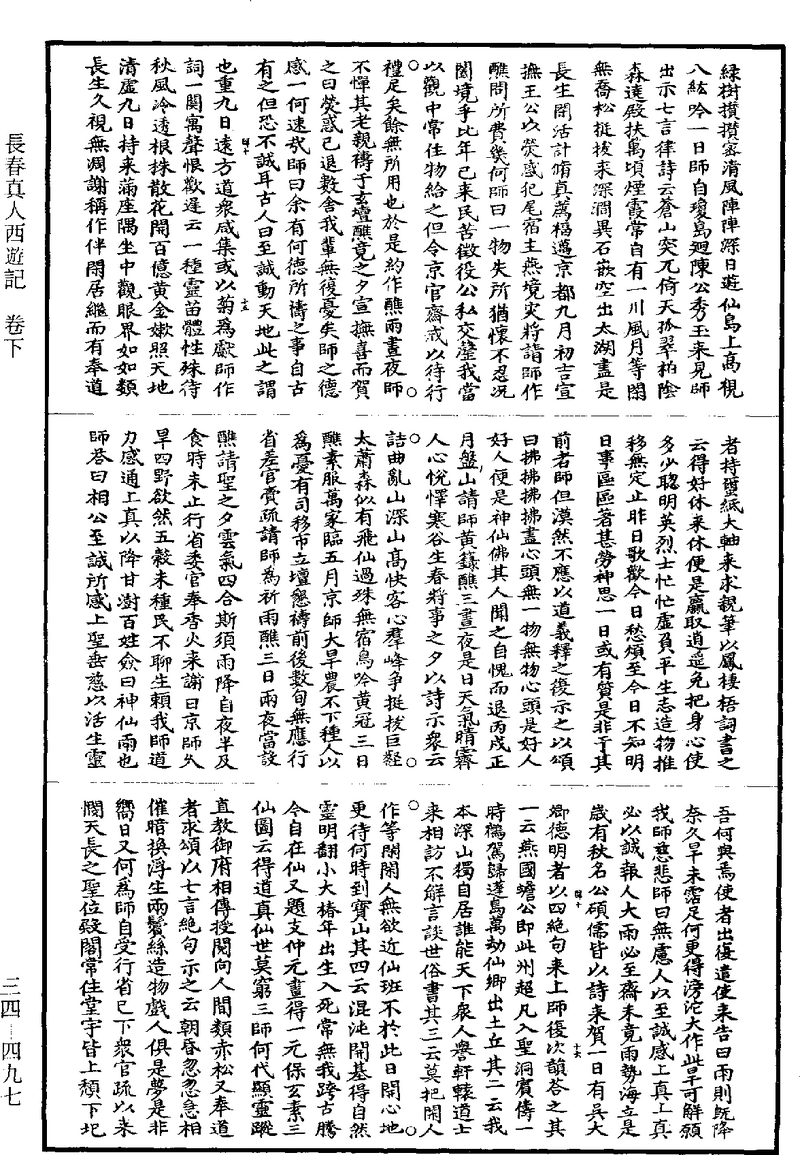 綠樹攢攢密清風陣陣深日遊仙島上高視
八紘吟一日師自瓊島迴陳公秀玉來見師
出示七言律詩云蒼山突兀倚天孤翠柏陰
森遶殿扶萬頃煙霞常自有一川風月等閑
無喬松挺拔來深澗異石嵌空出太湖盡是
長生閑活計脩真薦福邁京都九月初吉宣
撫王公以熒惑犯尾宿主燕境灾將請師作
醮問所費幾何師曰一物失所猶懷不忍況
闔境乎比年已來民苦徵役公私交罄我當
以觀中常住物給之但令京官齋戒以待行
禮足矣餘無所用也於是約作醮兩晝夜師
不憚其老親禱于玄壇醮竟之夕宣撫喜而賀
之曰熒惑已退數舍我輩無復憂矣師之德
感一何速哉師曰余有何德所禱之事自古
有之但恐不誠耳古人曰至誠動天地此之謂
也重九日遠方道衆咸集或以菊為獻師作
詞一闋寓聲恨歡遲云一種靈苗體性殊待
秋風冷透根株散花開百億黃金嫩照天地
清虛九日持來滿座隅坐中觀眼界如如類
長生久視無凋謝稱作伴閑居繼而有奉道
者持璽紙大軸來求親筆以鳳棲梧詞書之
云得好休來休便是贏取逍遥免把身心使
多少聰明英烈士忙忙虛負平生志造物推
移無定止昨日歌歡今日愁煩至今日不知明
日事區區著甚勞神思一日或有質是非于其
前者師但漠然不應以道義釋之復示之以頌
曰拂拂拂拂盡心頭無一物無物心頭是好人
好人便是神仙佛其人聞之自愧而退丙戌正
月盤山請師黃籙醮三晝夜是日天氣晴霽
人心悅懌寒谷生春將事之夕以詩示衆云
詰曲亂山深山高快客心羣峰爭挺拔巨壑
太蕭森似有飛仙過殊無宿鳥吟黃冠三日
醮素服萬家臨五月京師大旱農不下種人以
為憂有司移市立壇懇禱前後數旬無應行
省差官賫疏請師為祈雨醮三日兩夜當設
醮請聖之夕雲氣四合斯須雨降自夜半及
食時未止行省委官奉香火來謝曰京師久
旱四野欲然五穀未種民不聊生賴我師道
力感通上真以降甘澍百姓僉曰神仙雨也
師荅曰相公至誠所感上聖垂慈以活生靈
吾何與焉使者出復遣使來告曰雨則既降
奈久旱未霑足何更得滂沱大作此旱可解願
我師慈悲師曰無慮人以至誠感上真上真
必以誠報人大雨必至齋未竟雨勢海立是
歲有秋名公碩儒皆以詩來賀一日有吳大
卿德明者以四絕句來上師復次韻荅之其
一云燕國蟾公即此州超凡入聖洞賓儔一
時鶴駕歸蓬島萬劫仙鄉出土丘其二云我
本深山獨自居誰能天下衆人譽軒轅道士
來相訪不解言談世俗書其三云莫把閑人
作等閑閑人無欲近仙班不於此日開心地
更待何時到寶山其四云混沌開基得自然
靈明翻小大椿年出生入死常無我跨古騰
今自在仙又題支仲元畫得一元保玄素三
仙圖云得道真仙世莫窮三師何代顯靈蹤
直教御府相傳授閱向人間類赤松又奉道
者求頌以七言絕句示之云朝昏忽忽急相
催暗換浮生兩鬢絲造物戲人俱是夢是非
嚮日又何為師自受行省已下衆官疏以來
憫天長之聖位殿閣常住堂宇皆上頹下圮
長春真人西遊記 卷下
三四—四九七